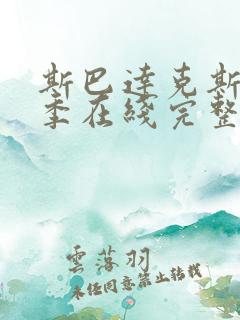 斯巴达克斯
季在线完整
雲落羽
未经同意禁止转载